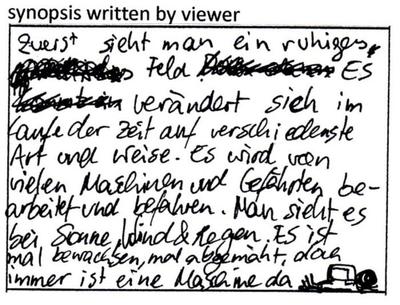 synopsis written by viewer
Zuerst sieht man ein ruhiges,
Feld Es
verändert sich im
Laufe der Zeit auf verschiedenste
Art und Weise. Es wird von
vielen Maschinen und Gefährten be-
arbeitet und befahren. Man sieht es
bei Sonne, Wind & Regen. Es ist
mal bewachsen, mal abgemäht, doch
immer ist eine Maschine da